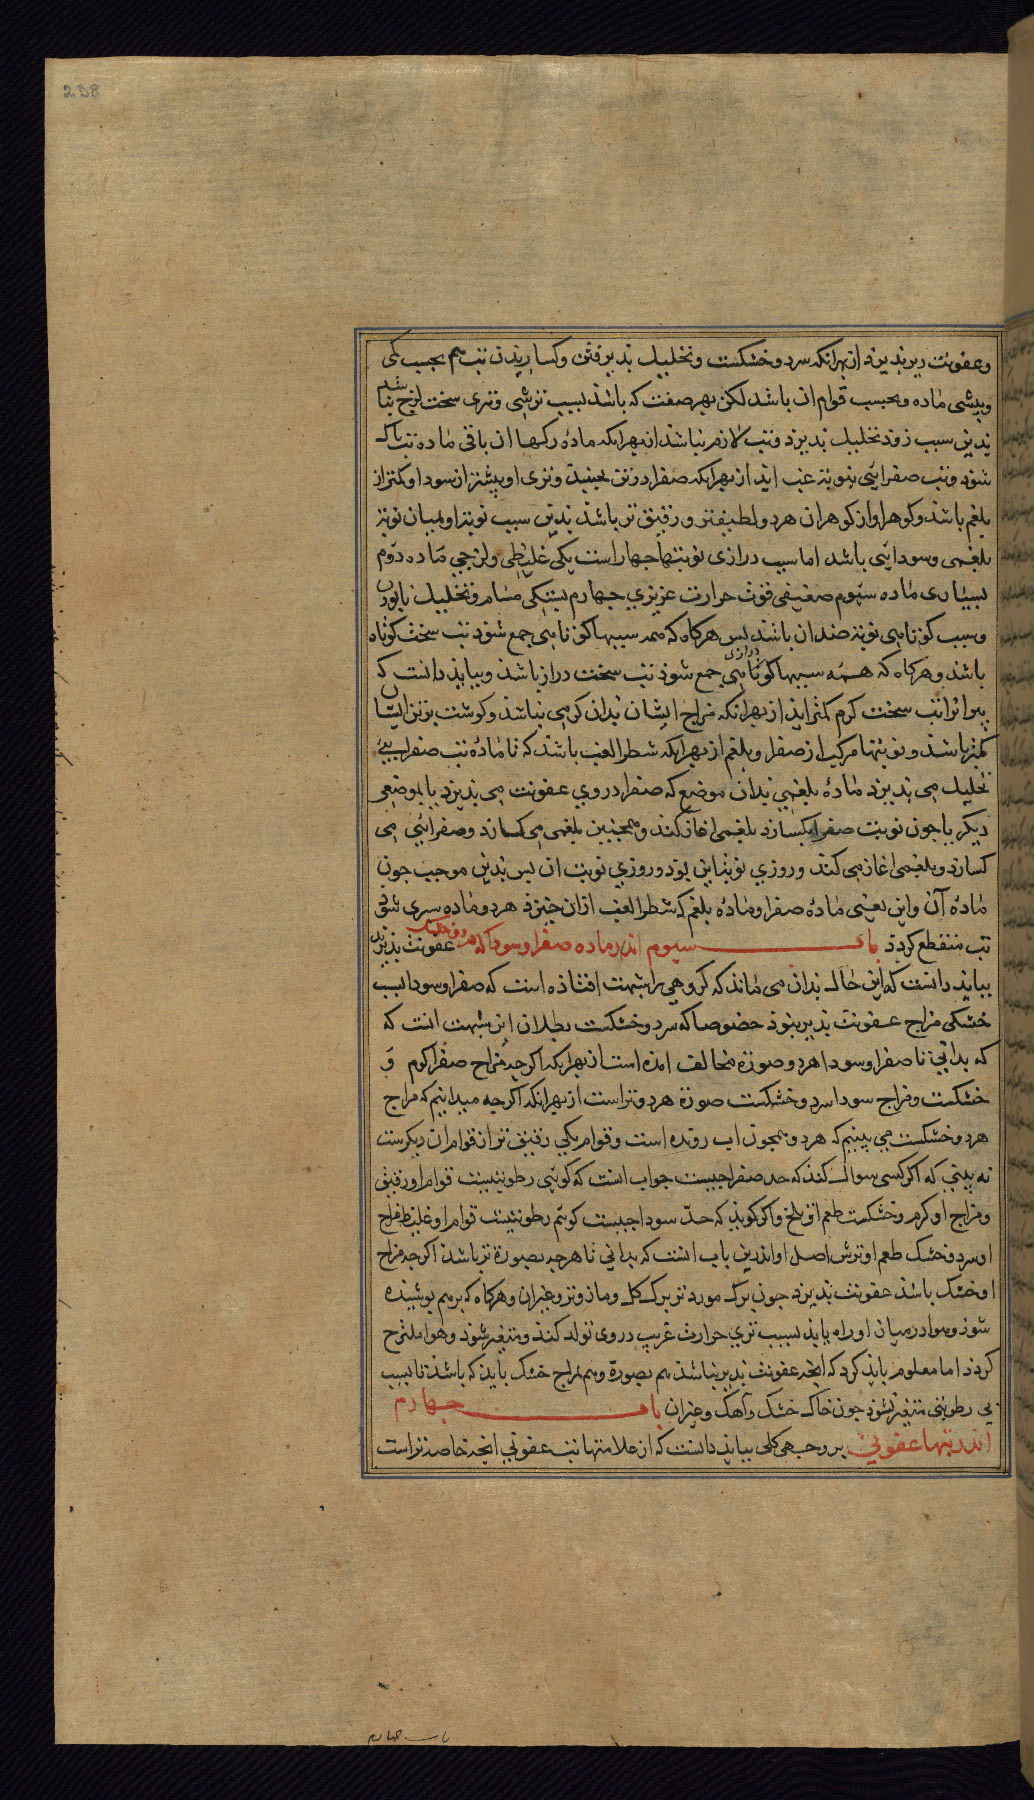 238
وعفونت دیر پذیرد از بهر انکه سرد و خشکست و تحلیل پذیرفتن و کساریدن تب هم بحسب کمی
وبیشی ماده وبحسب قوام ان باشد لکن بهر صفت که باشد بسبب ترشی وتری سخت لزج نباشد
بدین سبب زود تحلیل پذیرد وتب لازم نباشد از بهر انکه ماده رکها از باقی ماده تب پاک
شود وتب صفرایی بنوبت غب اید از بهر انکه صفرا در تن بجنبد وتری او بیشتر از سودا وکمتر از
بلغم باشد وکوهر او از کوهر ان هر دو لطیفتر ورقیق تر باشد بدین سبب نوبت او بمیان نوبت
بلغمی وسودایی باشد اما سبب درازی نوبتها جهار است یکی غلیظی ولزجی ماده دوم
بسیاری ماده سیوم ضعیفی قوت حرارت غریزی جهارم بستکی مسام وتحلیل نابودن
وسبب کوتاهی نوبت ضد ان باشد بس هرکاه که همه سببها کوتاهی جمع شود تب سخت کوتاه
باشد وهرکاه که همه سببها درازی جمع شود تب سخت دراز باشد وبباید دانست که
پیرانرا تب سخت کرم کمتر اید از بهر انکه مزاج ایشان بدان کرمی نباشد وکوشت بر تن ایشان
کمتر باشد ونوبتها مرکب از صفرا وبلغم از بهر انکه شطر الغب باشد که تا ماده تب صفرایی
تحلیل می پذیرد ماده بلغمی بدان موضع که صفرا در وی عفونت می پذیرد یا بموضعی
دیکر یا جون نوبت صفرا بکسارد بلغمی اغاز کند وهمجنین بلغمی می کسارد وصفرایی می
کسارد وبلغمی اغاز می کند وروزی نوبت این بود وروزی نوبت ان بس بدین موجب جون
ماده آن واین یعنی ماده صفرا وماده بلغم که شطر الغب ازان خیزد هر دو ماده سبری شود
تب منقطع کردد باب سیوم اندر ماده صفرا وسودا که هر دو خشک عفونت پذیرد
بباید دانست که این حال بدان می ماند که کروهی را شبهت افتاده است که صفرا وسودا بسبب
خشکی مزاج عفونت پذیر نبود خصوصا که سرد وخشکست بطلان این شبهت انست که
که بدانی تا صفرا وسودا هر دو صورة مخالف امده است از بهر انکه اکرجه مزاج صفرا کرم و
خشکست ومزاج سودا سرد وخشکست صورة هر دو تر است از بهر انکه اکر جه میدانیم که مزاج
هر دو خشکست می بینیم که هر دو همجون اب رونده است وقوام یکی رقیق تر از قوام ان دیکرست
نه بینی که اکر کسی سوال کند که حد صفرا جیست جواب انست که کویی رطوبتیست قوام او رقیق
ومزاج او کرم وخشکست طعم او تلخ واکر کوید که حد سودا جیست کویم رطوبتیست قوام او غلیظ مزاج
او سرد وخشک طعم او ترش اصل او اندرین باب انست که بدانی تا هرجه بصورة تر باشد اکرجه مزاج
او خشک باشد عفونت پذیرد جون برک مورد تر برک کل ومازو تر وغیر ان وهرکاه که بر هم بوشیده
شود وهوا در میان او راه یابد بسبب تری حرارت غریب در وی تولد کند ومتغیر شود وهوا ملتوح
کردد اما معلوم باید کرد که انجه عفونت پذیر نباشد هم بصورة وهم بمزاج خشک باید که باشد تا بسبب
بی رطوبتی متغیر نشود جون خاک خشک وآهک وغیران باب جهارم
اندر تبها عفونی بر وجهی کلی بباید دانست که از علامتها تب عفونی انجه خاصه تر است
باب جهارم